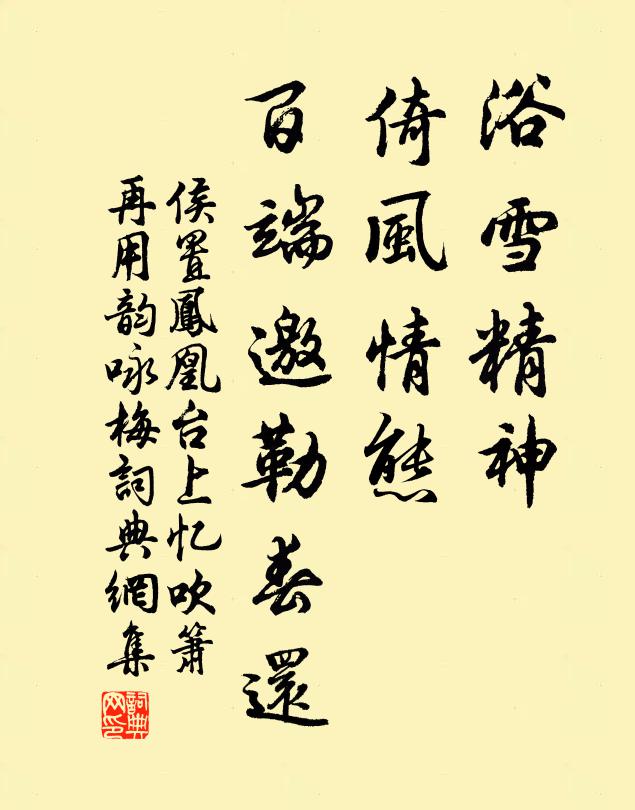 浴雪精神
倚風情態
百端邀勒春還
侯置鳳凰台上忆吹簫
再用韵咏梅詞典網集
詞典网印